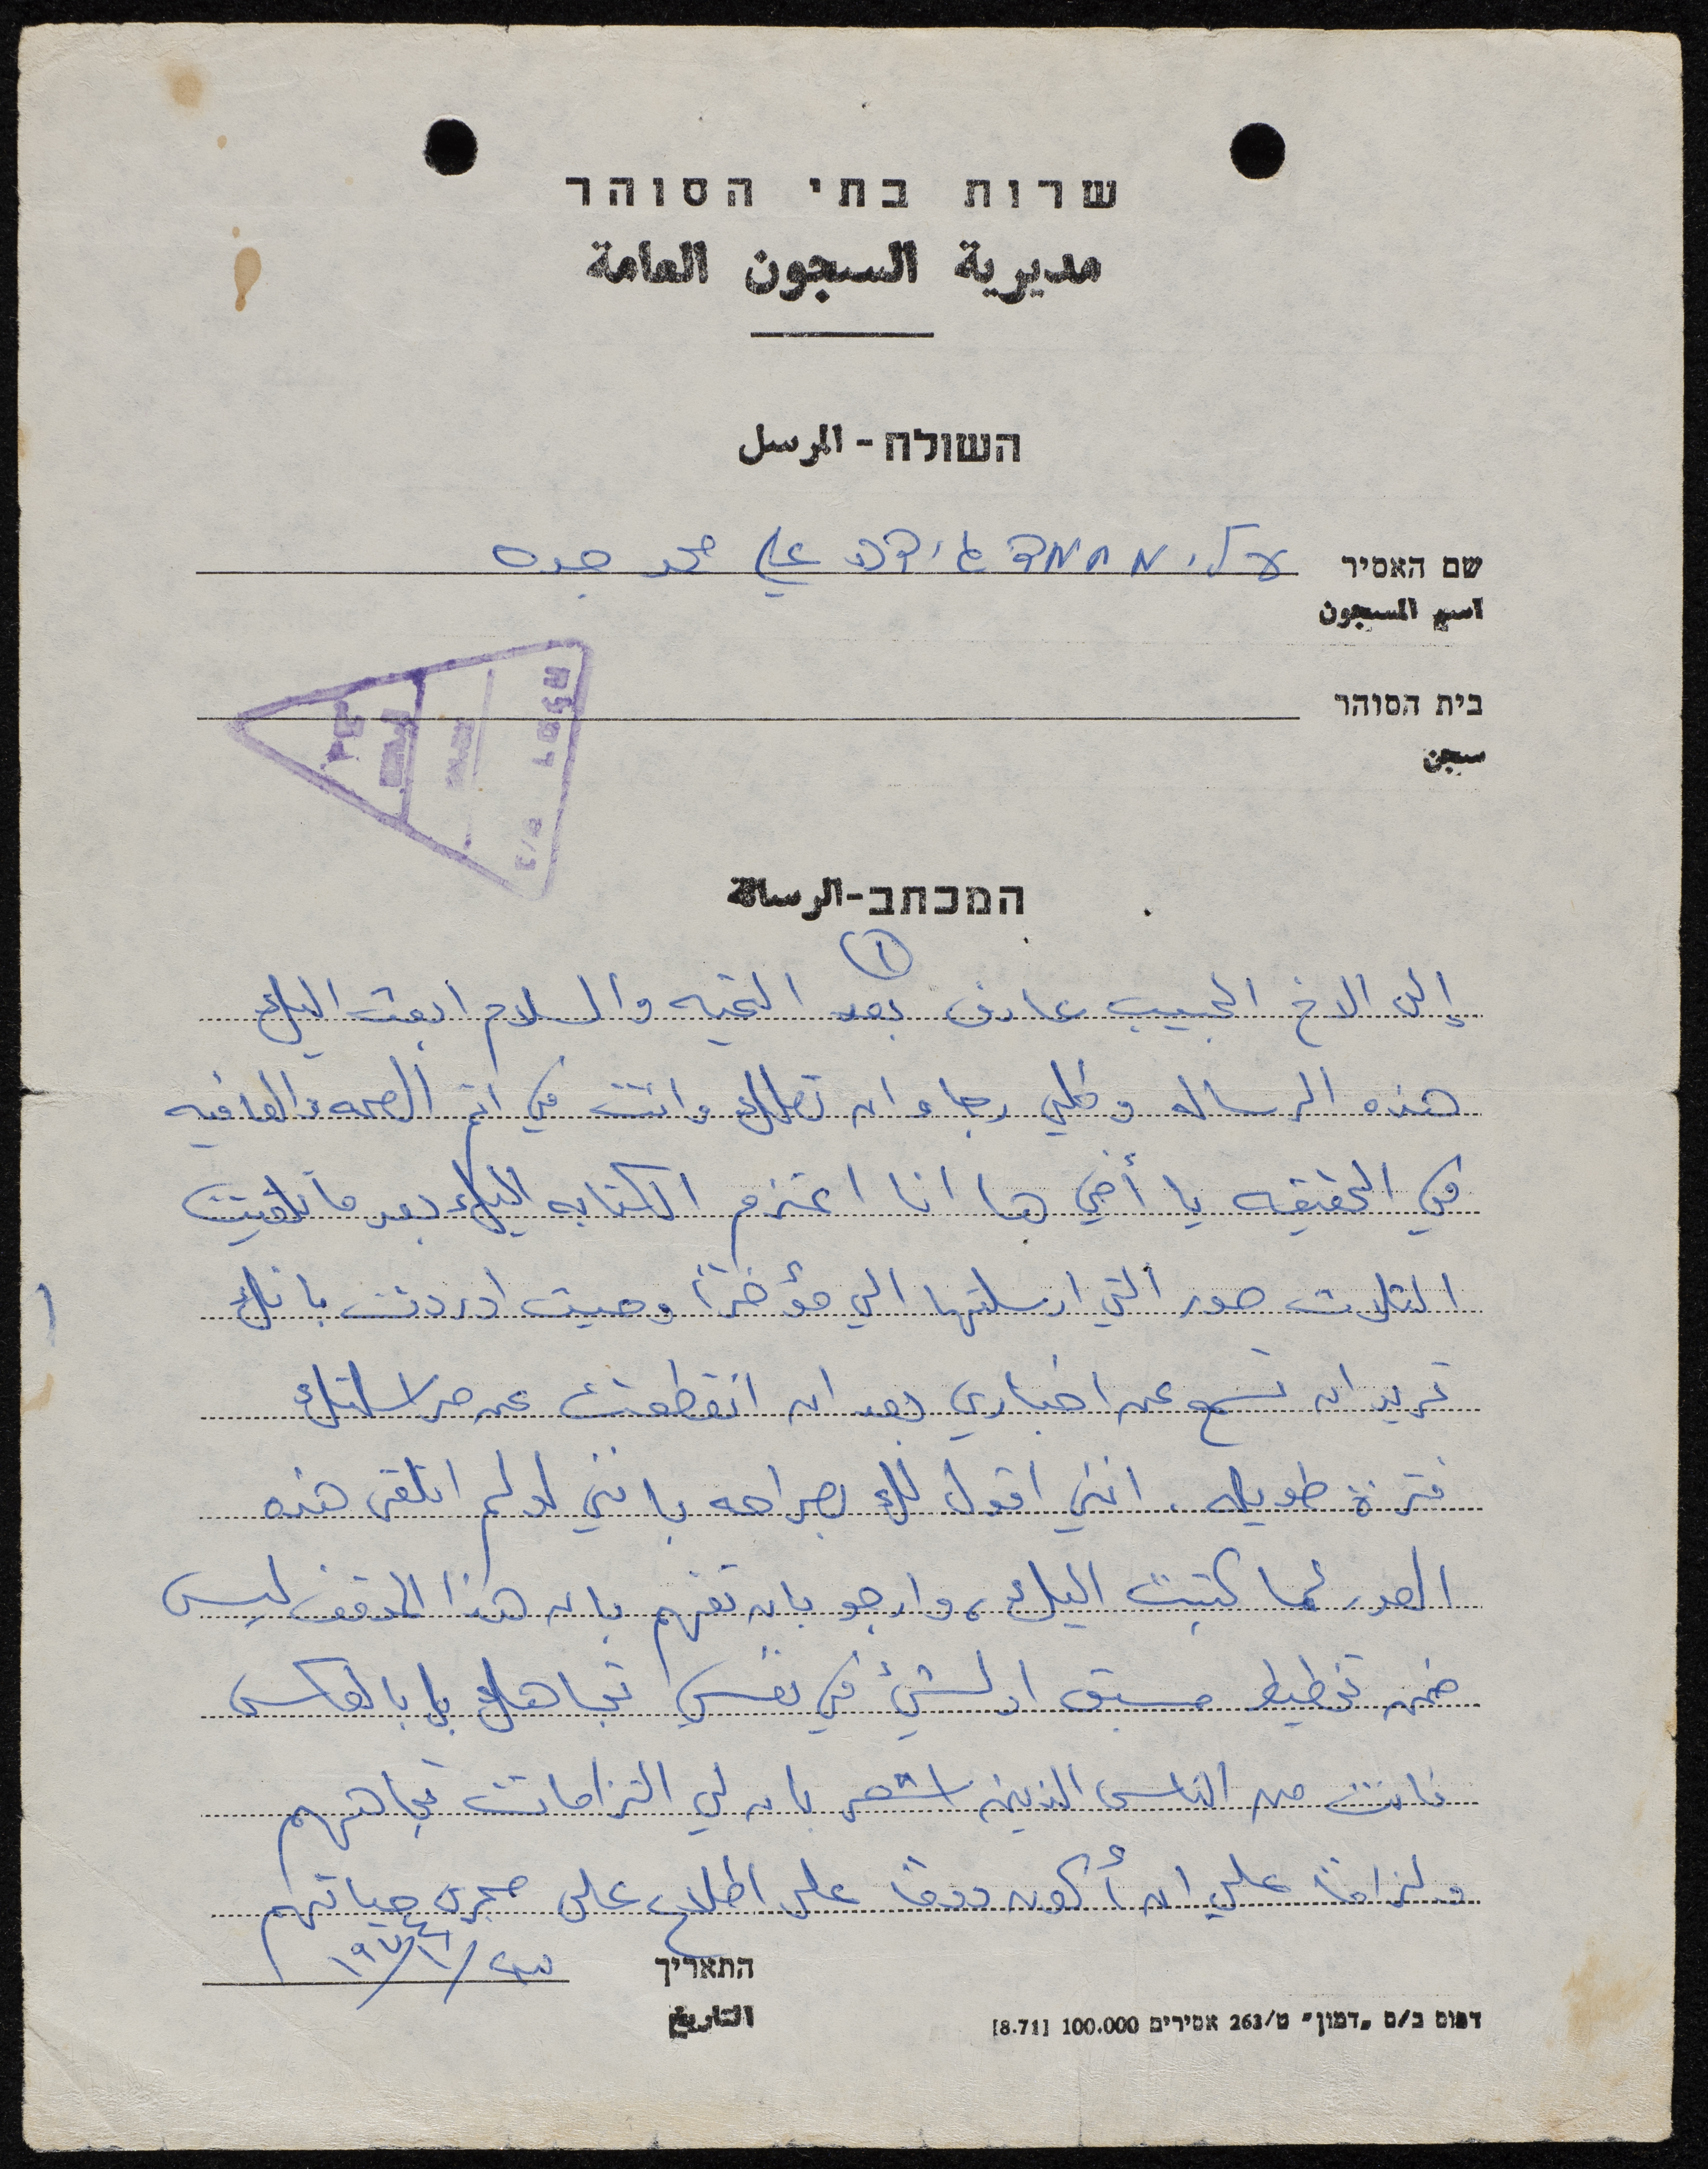 שרות בתי הסוהר
مديرية السجون العامة
השולח - المرسل
שם האסיר עלי מחמד ג'ידה علي محمد جده
اسم المسجون
בית הסוהר
سجن
המכתב - الرسالة
١
إلى الاخ الحبيب عارف بعد التحيه والسلام ابعث اليك
هذه الرساله وكلي رجاء ان تصلك وانت في اتم الصحه والعافيه
في الحقيقه يا أخي ها انا اعتزم الكتابه اليك بعد ما تلقيت
الثلاث صور التي ارسلتها الي مؤخراً وحيث اردت بانك
تريد ان تسمع عن اخباري بعد ان انقطعت عن مراسلتك
فترة طويله. انني اقول لك بصراحه بانني لو لم اتلقى هذه
الصور لما كتبت اليك، وارجو بان تفهم بان هذا الموقف ليس
ضمن تخطيط مسبق او لشيء في نفسي تجاهك بل بالعكس
فانت من الناس الذين اشعر بان لي التزامات تجاههم
ولزاماً علي ان أكون دوماً على اطلاع على مجرى حياتهم
התאריך
التاريخ
דפוס ב/ס "דמון" ט/263 אסירים 100.000 [8.71]